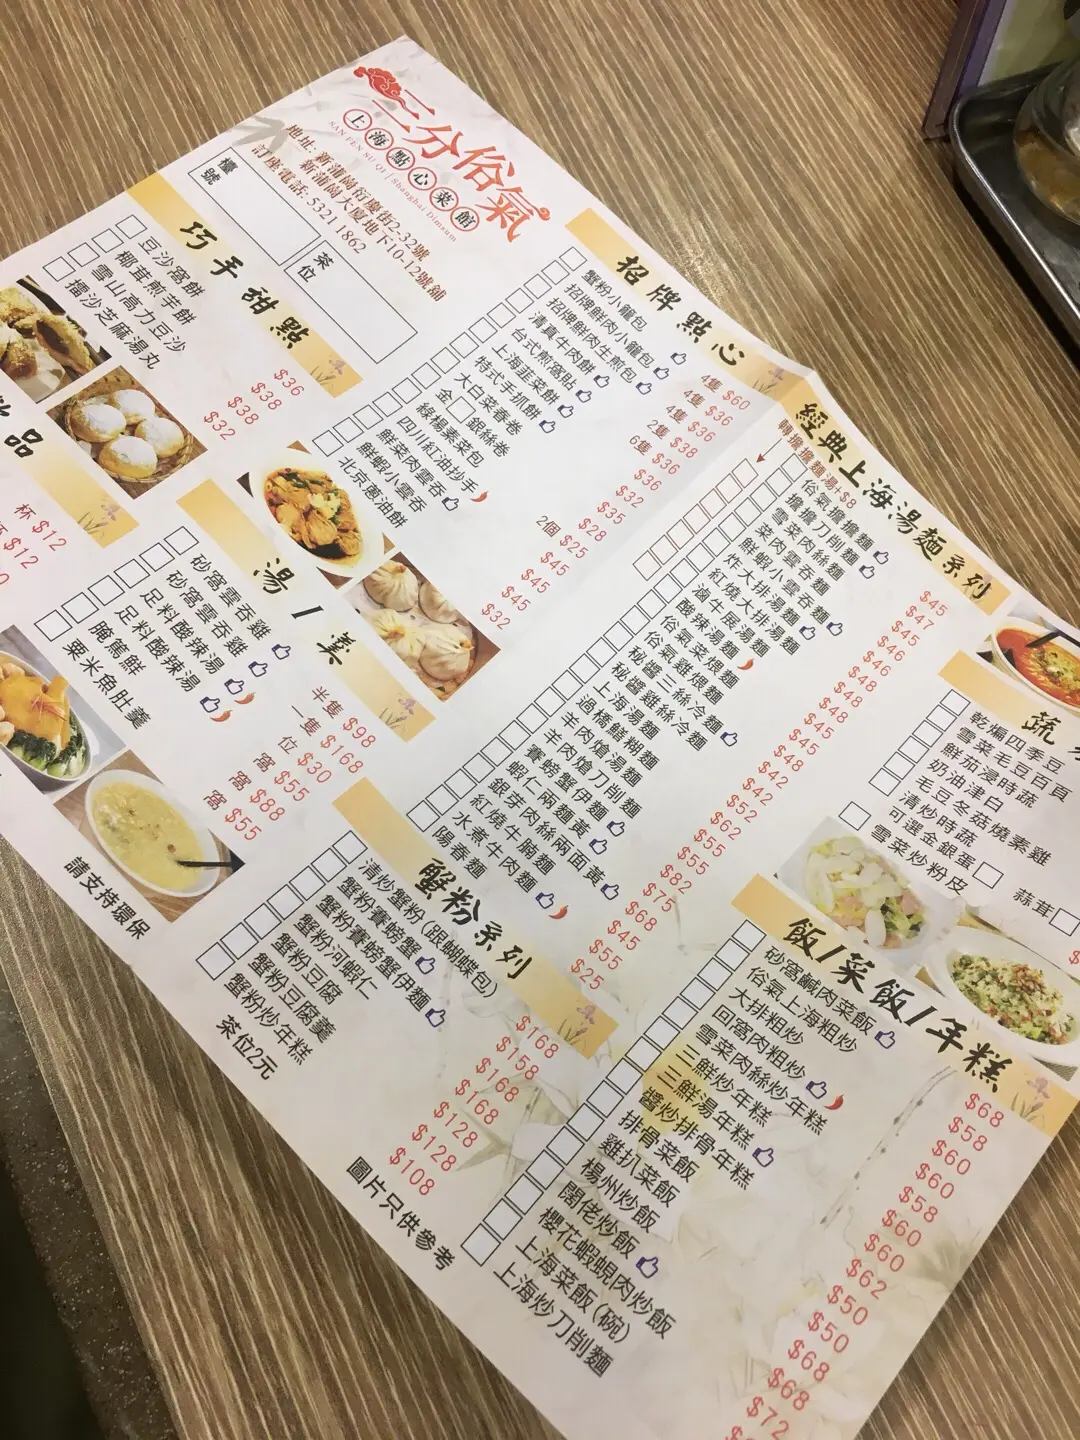 三分俗氣
上海點心菜館
SAN FEN SU QI | Shanghai Dimsum
地址: 新蒲崗衍慶街2-32號
新蒲崗大廈地下10-12號舖
訂座電話: 5321 1862
檯號
茶位
巧手甜點
豆沙窩餅 $36
椰茸煎芋餅 $38
雪山高力豆沙 $38
擂沙芝麻湯丸 $32
品
杯 $12
$12
湯/羹
砂窩雲吞雞 半隻 $98
砂窩雲吞雞 一隻 $168
足料酸辣湯 位 $30
足料酸辣湯 窩 $55
腌篤鮮 窩 $88
粟米魚肚羹 窩 $55
請支持環保
招牌點心
蟹粉小籠包 4隻 $60
招牌鮮肉小籠包 4隻 $36
招牌鮮肉生煎包 4隻 $36
清真牛肉餅 2隻 $38
台式煎窩貼 6隻 $36
上海韮菜餅 $36
特式手抓餅 $32
大白菜春卷 $35
金銀絲卷 $28
綠楊素菜包 2個 $25
四川紅油抄手 $45
鮮菜肉雲吞 $45
鮮蝦小雲吞 $45
北京蔥油餅 $32
經典上海湯麵系列
轉擔擔麵湯+$8
俗氣擔擔麵 $45
擔擔刀削麵 $47
雪菜肉絲麵 $45
菜肉雲吞麵 $46
鮮蝦小雲吞麵 $46
炸大排湯麵 $48
紅燒大排湯麵 $48
滷牛展湯麵 $48
酸辣湯麵 $45
俗氣菜煨麵 $45
俗氣雞煨麵 $48
秘醬三絲冷麵 $42
秘醬雞絲冷麵 $42
上海湯麵
過橋鱔糊麵
羊肉熗湯麵
羊肉熗刀削麵
賽螃蟹伊麵
蝦仁兩麵黃
銀芽肉絲兩面黃
紅燒牛腩麵
水煮牛肉麵
陽春麵 $25
$52
$62
$55
$55
$82
$75
$68
$45
$55
蟹粉系列
清炒蟹粉(跟蝴蝶包) $168
蟹粉賽螃蟹 $158
蟹粉賽螃蟹伊麵 $168
蟹粉河蝦仁 $168
蟹粉豆腐 $128
蟹粉豆腐羹 $128
蟹粉炒年糕 $108
茶位2元
圖片只供參考
蔬
乾煸四季豆
雪菜毛豆百頁
鮮茄浸時蔬
奶油津白
毛豆冬菇燒素雞
清炒時蔬 蒜茸
可選金銀蛋
雪菜炒粉皮
飯/菜飯/年糕
砂窩鹹肉菜飯 $68
俗氣上海粗炒 $58
大排粗炒 $60
回窩肉粗炒 $60
雪菜肉絲炒年糕 $58
三鮮炒年糕 $60
三鮮湯年糕 $60
醬炒排骨年糕 $62
排骨菜飯 $50
雞扒菜飯 $50
楊州炒飯 $68
闊佬炒飯 $68
櫻花蝦蜆肉炒飯 $72
上海菜飯(碗)
上海炒刀削麵